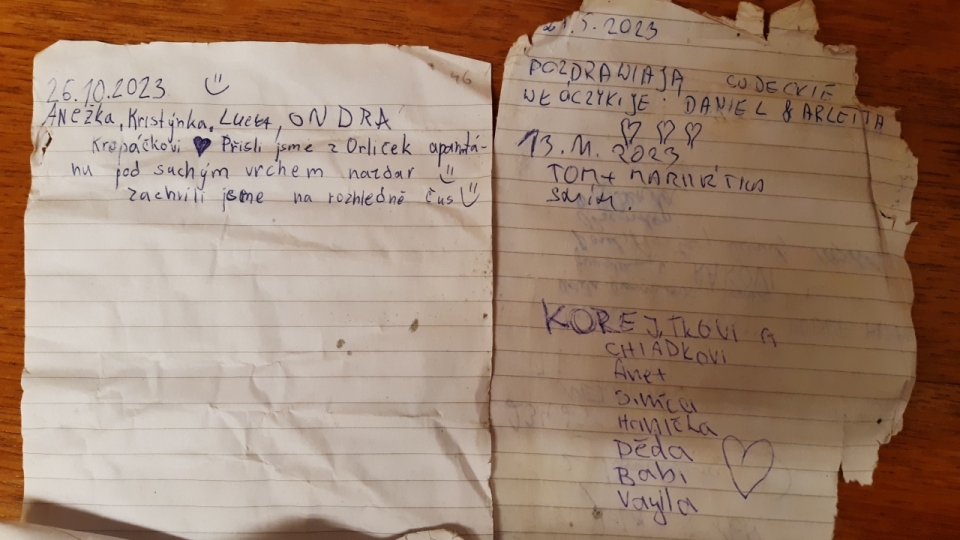 26.10.2023
Anežka, Kristýnka, Lucka, ONDRA
Kropáčkovi Přišli jsme z Orliček apartmá-
nu pod suchým vrchem nazdar
zachvili jsme na rozhledně čus
46
.5.2023
POZDRAWIAJĄ CUDECKIE
WŁÓCZYKIJE: DANIEL & ARLETTA
13.11.2023
TOM +
KOREJTKOVI A
CHLADKOVI
Anet
Hanička
Děda
Babi